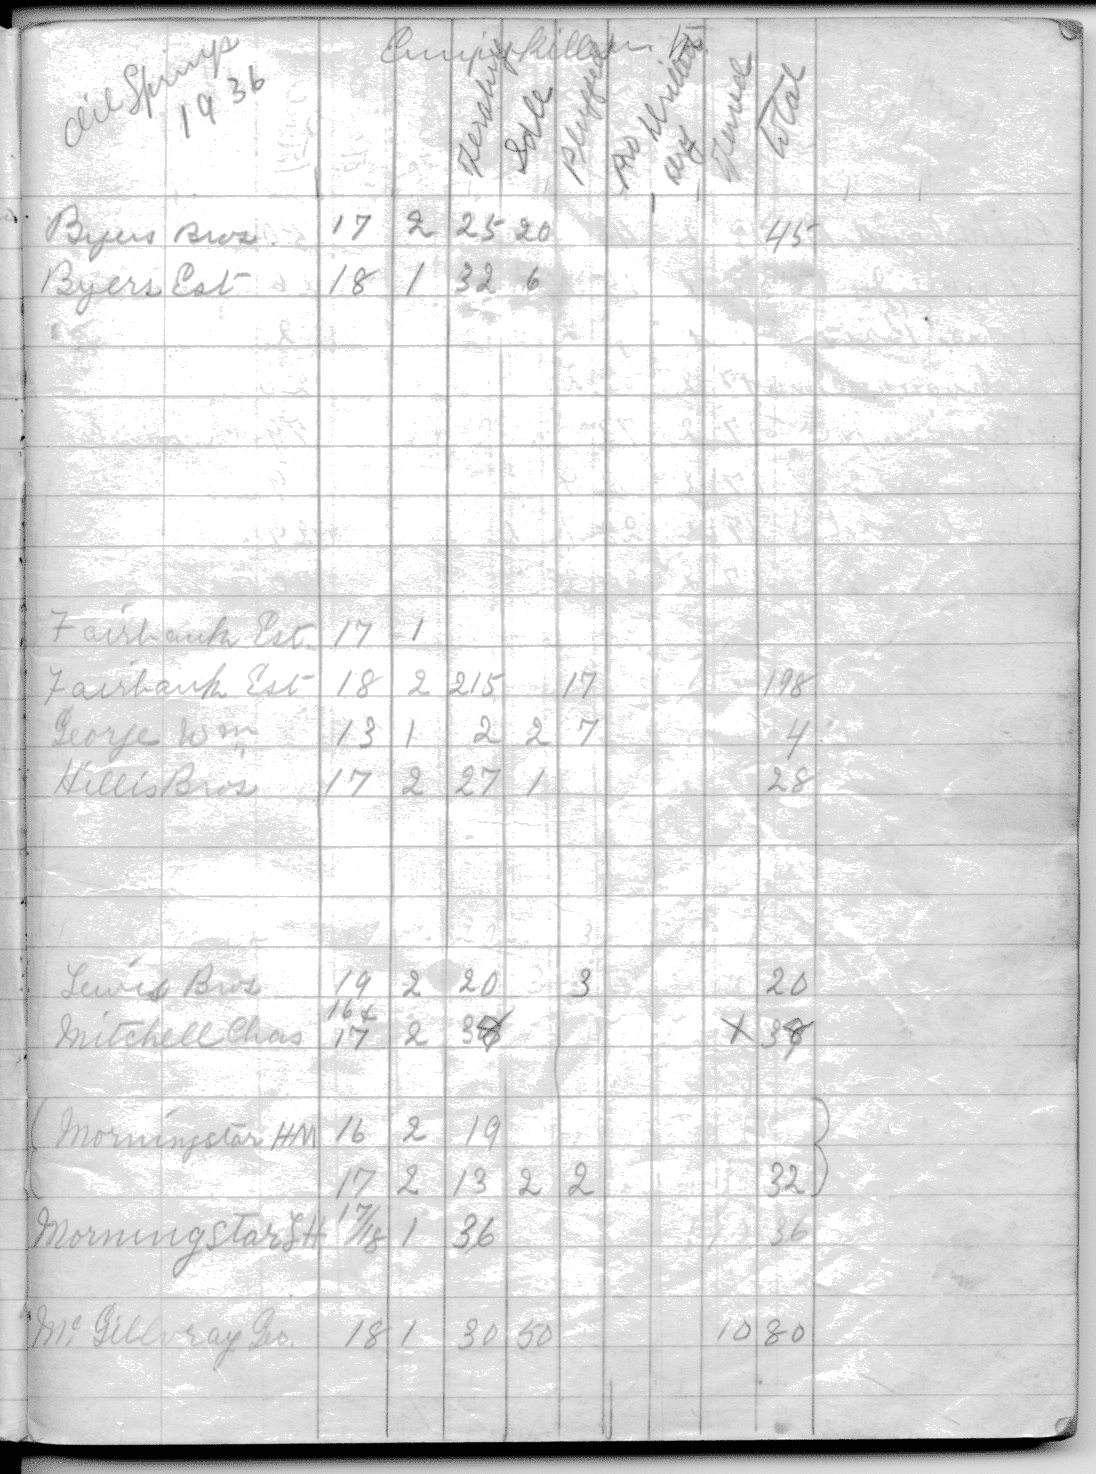 Oil Springs
1936
Enniskillen
Idle
Plugged
No Drilled
Total
Byers Bros. 17 2 25 20 45
Byers Est 18 1 32 6
Fairbank Est. 17 1
Fairbank Est 18 2 215 17 198
George Wm 13 1 2 2 7 4
Hillis Bros 17 2 27 1 28
Lewis Bros 19 2 20 3 20
16 &
Mitchell Chas 17 2 38 X 38
Morningstar HM 16 2 19
17 2 13 2 2 32
Morningstar LH 17/18 1 36 36
McGillvray Geo. 18 1 30 50 10 80